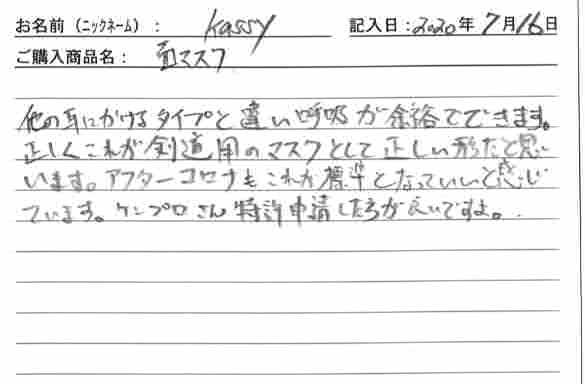 お名前（ニックネーム）： kassy 記入日：2020年7月16日
ご購入商品名： 面マスク
他の耳にかけるタイプと違い呼吸が余裕でできます。
正しくこれが剣道用のマスクとして正しい形だと思い
います。アフターコロナもこれが標準となっていいと感じ
ています。ケンプロさん特許申請したら方が良いですよ。